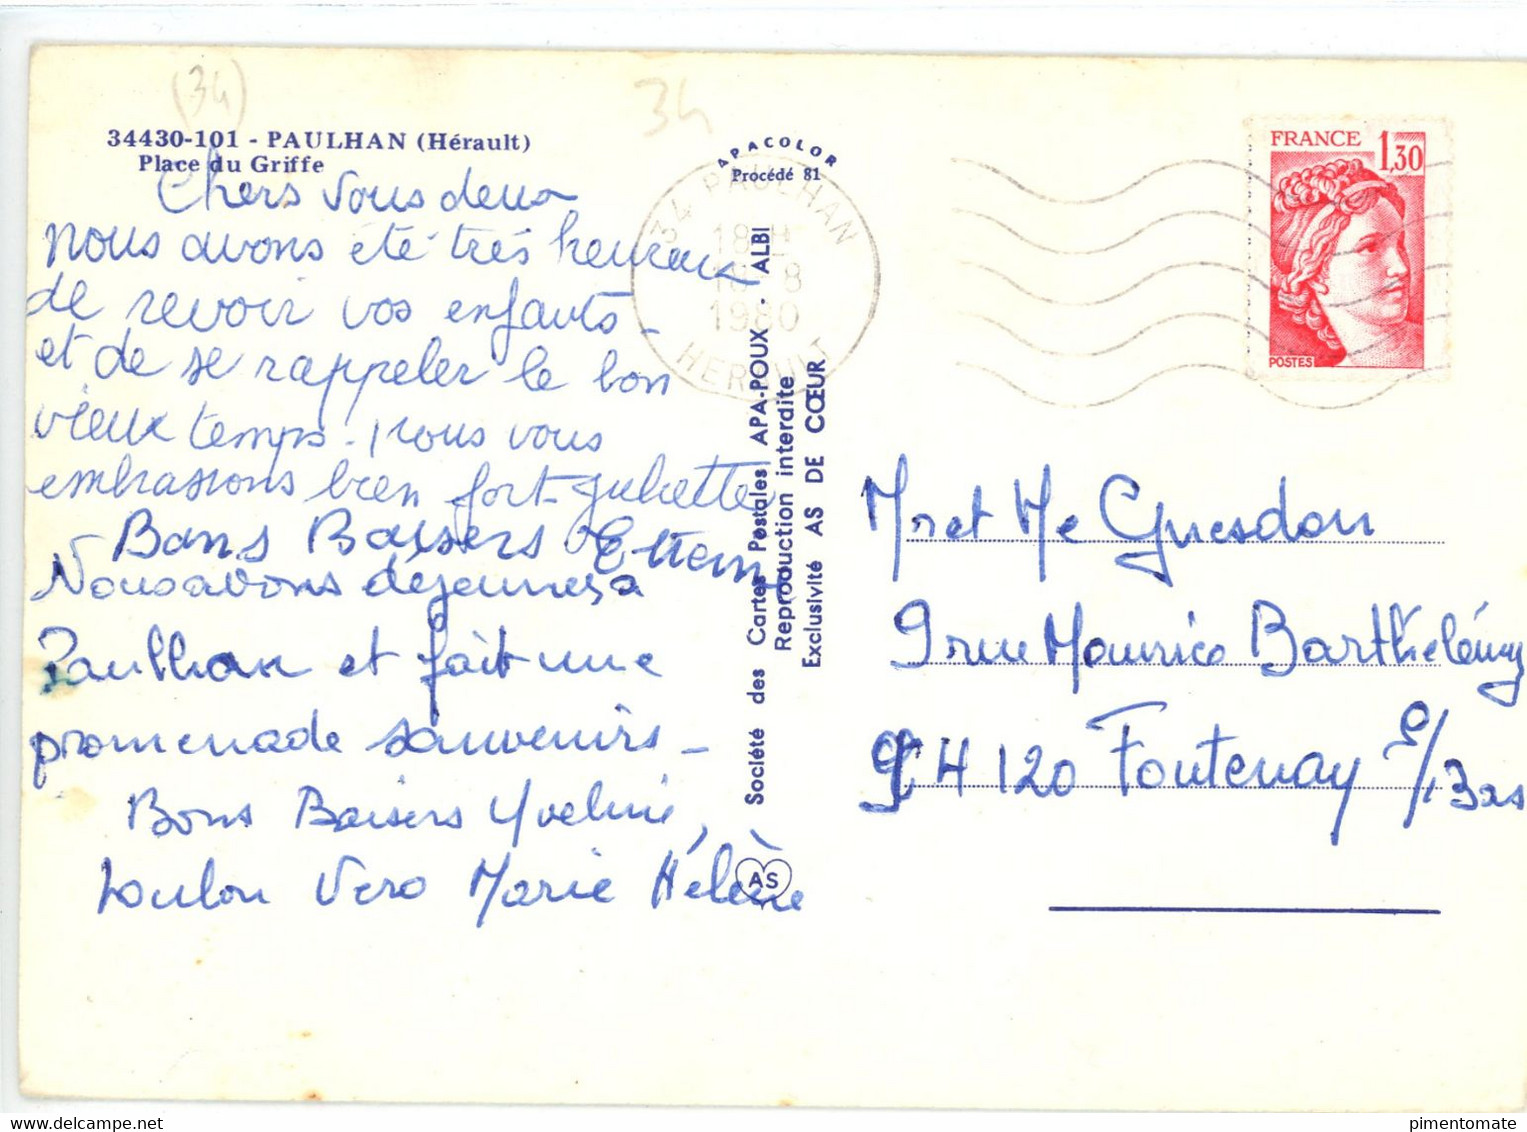 (34)
34
34430-101 - PAULHAN (Hérault)
Place du Griffe
APACOLOR
Procédé 81
34 PAULHAN
18H
18-8
1980
HERAULT
FRANCE
1,30
POSTES
Chers vous deux
nous avons été très heureux
de revoir vos enfants -
et de se rappeler le bon
vieux temps. nous vous
embrassons bien fort Juliette
Bons Baisers Etienne
Nous avons déjeunés a
Paulhan et fait une
promenade souvenirs -
Bons Baisers Yveline,
Loulou Vero Marie Hélène
Société des Cartes Postales APA-POUX - ALBI
Reproduction interdite
Exclusivité AS DE CŒUR
AS
Mr et Me Guesdon
9 rue Maurice Barthélémy
94120 Fontenay S/Bas
pimentomate